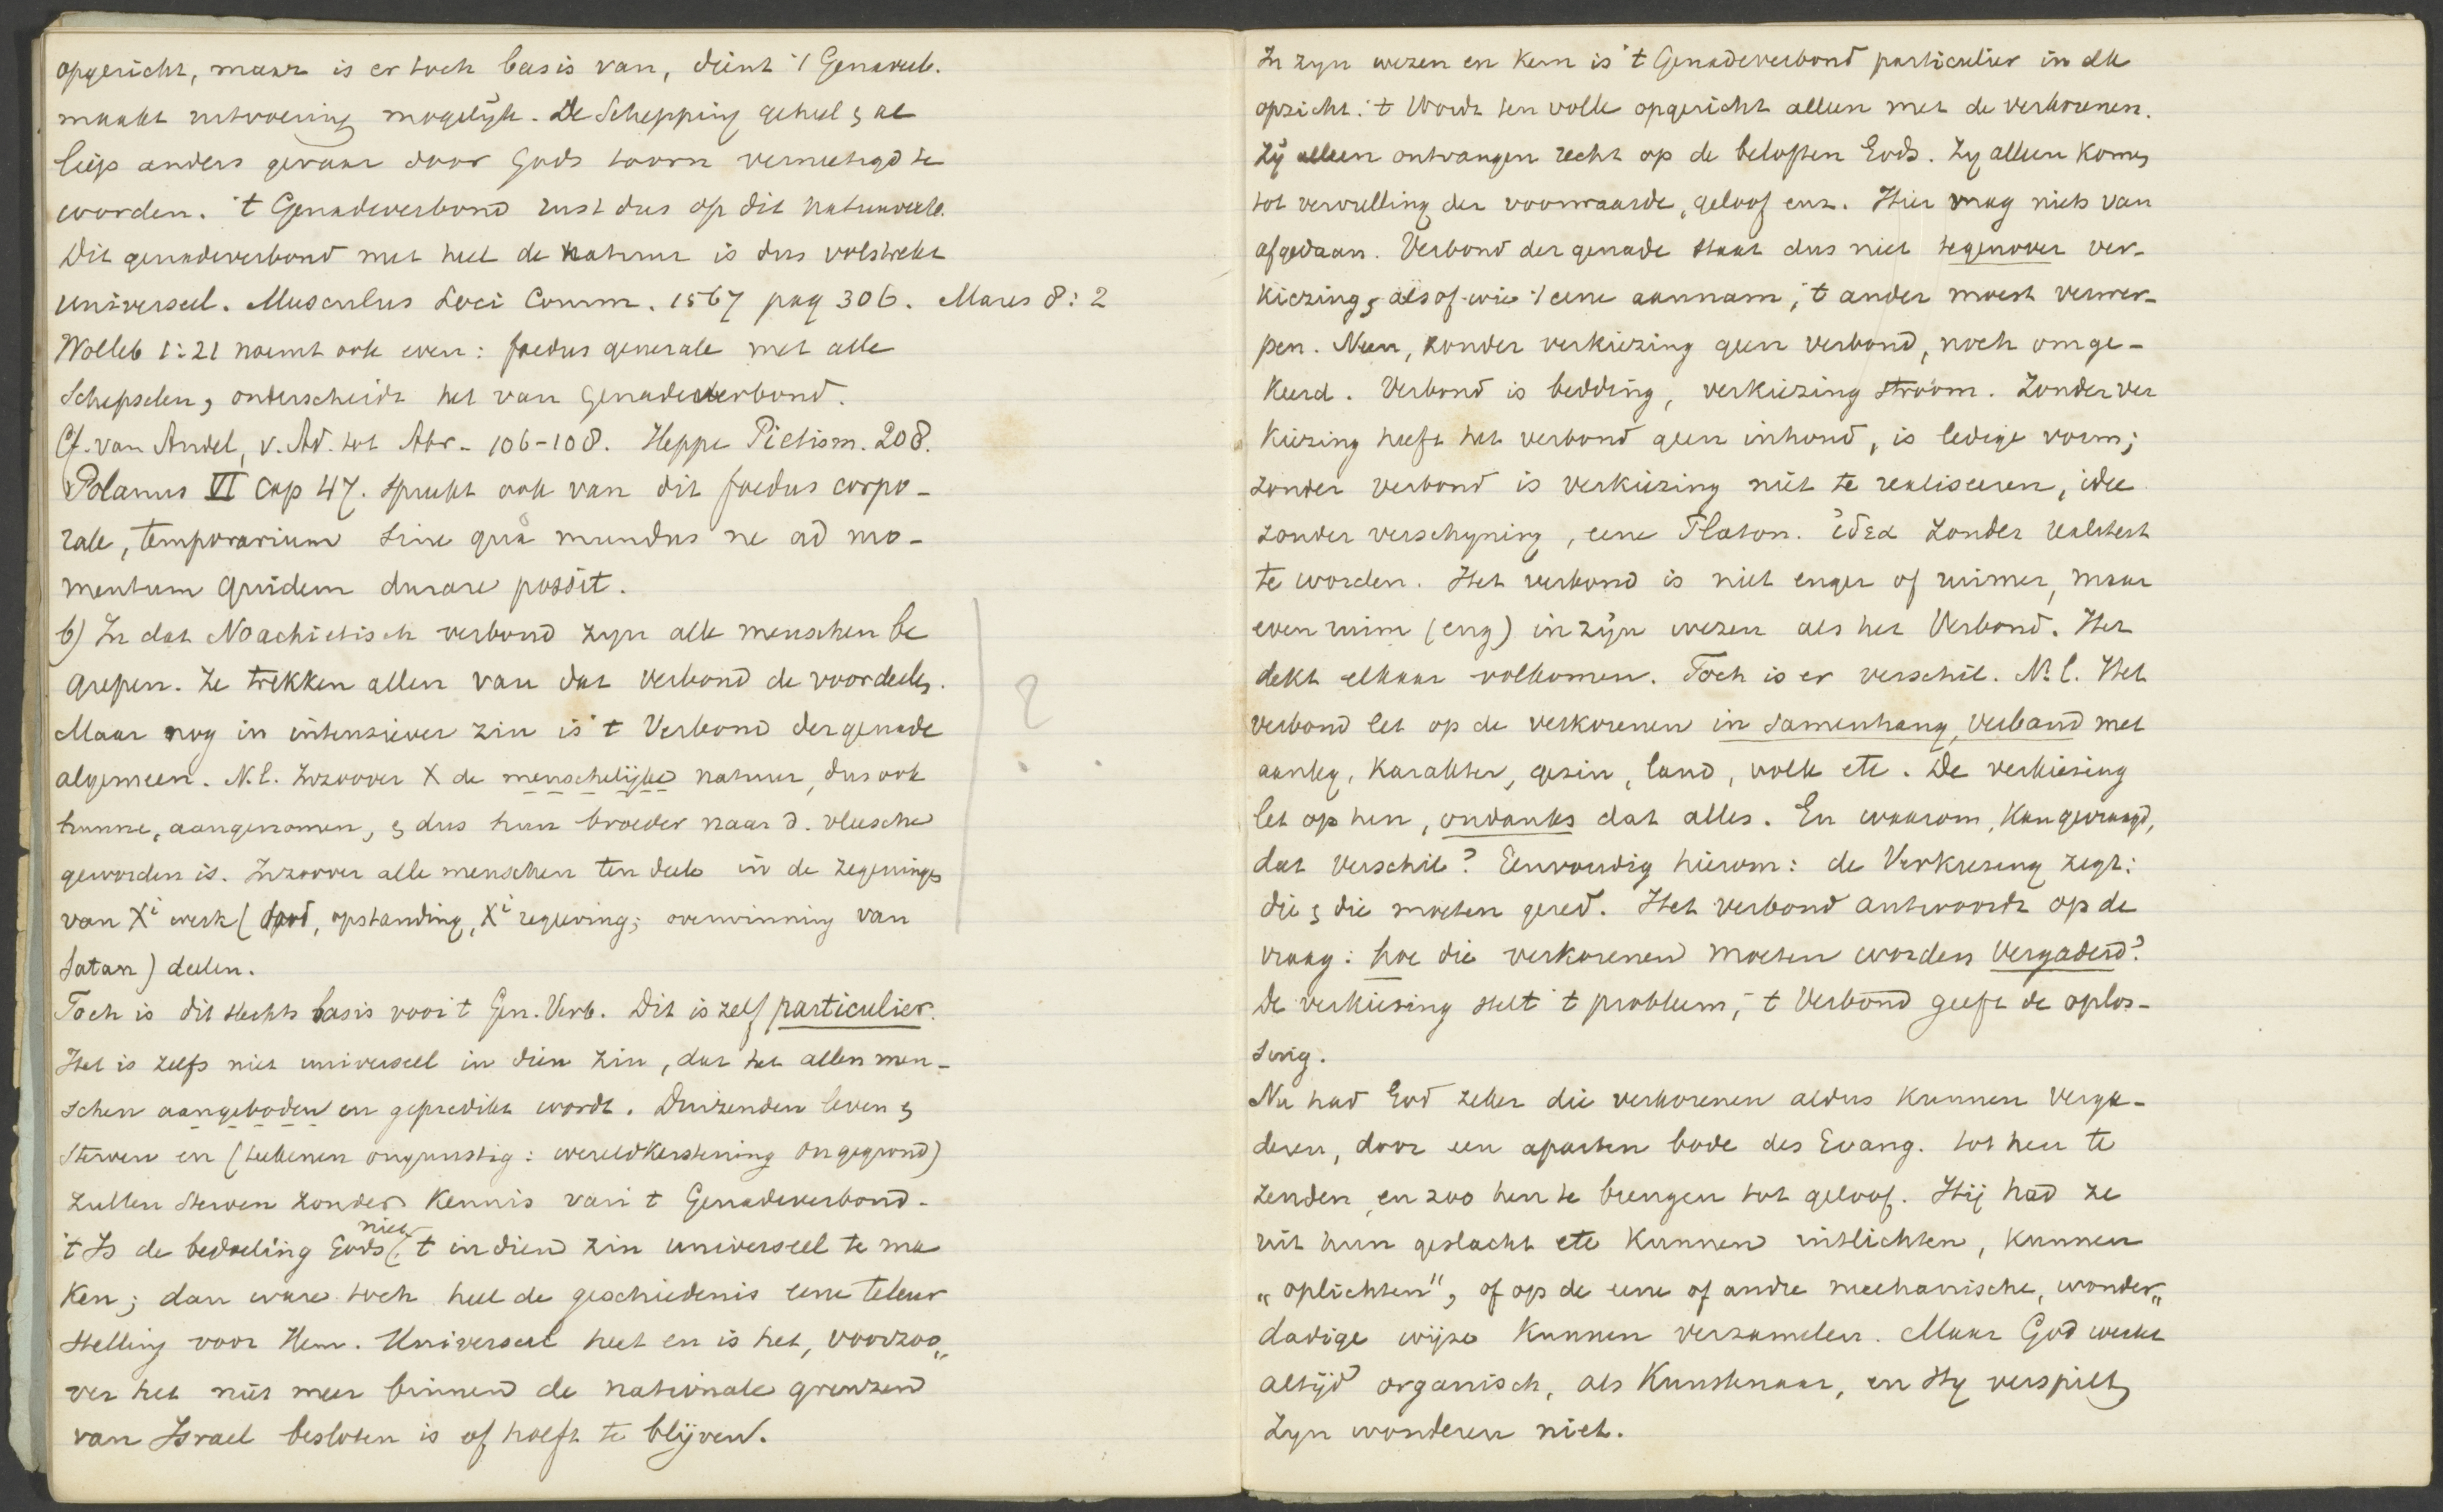 opgericht, maar is er toch basis van, dient 't Genaverb.
maakt uitvoering mogelijk. De Schepping geheel & al
liep anders gevaar door Gods toorn vernietigd te
worden. 't Genadeverbond rust dus op dit natuurverb.
Dit genadeverbond met heel de natuur is dus volstrekt
universeel. Musculus Loci Comm. 1567 pag 306. Mares 8:2
Wolleb 1:21 noemt ook even: foedus generale met alle
Schepselen, onderscheidt het van Genadeverbond.
Cf. van Andel, v. Ad. tot Abr. 106-108. Heppe Pietism. 208.
Polanus VI Cap 47. spreekt ook van dit foedus corpo-
rale, temporarium sine quâ mundus ne ad mo-
mentum quidem durare possit.
b) In dat Noachietisch verbond zyn alle menschen be
grepen. Ze trekken allen van dat verbond de voordeelen.
Maar nog in intensiever zin is 't Verbond der genade
algemeen. N.l. Inzoover X de menschelijke natuur, dus ook
hunne, aangenomen, & dus hun broeder naar d. vleesche
geworden is. Inzoover alle menschen ten deele in de zegeningen
van Xi werk (dood, opstanding, Xi regeering; overwinning van
Satan) deelen.
?
Toch is dit slechts basis voor 't Gen. Verb. Dit is zelf particulier.
Het is zelfs niet universeel in dien zin, dat het allen men-
schen aangeboden en gepredikt wordt. Duizenden leven &
sterven en (teekenen ongunstig: wereldkerstening ongegrond)
zullen sterven zonder kennis van 't Genadeverbond.
't Is de bedoeling Gods niet 't in dien zin universeel te ma
ken; dan ware toch heel de geschiedenis eene teleur
stelling voor Hem. Universeel heet en is het, voorzoo„
ver het niet meer binnen de nationale grenzen
van Israel besloten is of hoeft te blijven.
In zyn wezen en kern is 't Genadeverbond particulier in elk
opzicht: 't Wordt ten volle opgericht alleen met de verkorenen.
Zij alleen ontvangen recht op de beloften Gods. Zy alleen komen
tot vervulling der voorwaarde, geloof enz. Hier mag niets van
afgedaan. Verbond der genade staat dus niet tegenover ver-
kiezing, alsof wie 't eene aannam, 't ander moest verwer-
pen. Neen, zonder verkiezing geen verbond, noch omge-
keerd. Verbond is bedding, verkiezing stroom. Zonder ver
kiezing heeft het verbond geen inhoud, is ledige vorm;
zonder verbond is verkiezing niet te realiseeren, idee
zonder verschyning, eene Platon. ἰδεα zonder realiteit
te worden. Het verbond is niet enger of ruimer, maar
even ruim (eng) in zijn wezen als het Verbond. Het
dekt elkaar volkomen. Toch is er verschil. N.l. Het
verbond let op de verkorenen in samenhang, verband met
aanleg, karakter, gezin, land, volk etc. De verkiezing
let op hen, ondanks dat alles. En waarom, kan gevraagd,
dat verschil? Eenvoudig hierom: de Verkiezing zegt:
die & die moeten gered. Het verbond antwoordt op de
vraag: hoe die verkorenen moeten worden vergaderd?
De verkiezing stelt 't probleem, 't Verbond geeft de oplos-
sing.
Nu had God zeker die verkorenen aldus kunnen verga-
deren, door een aparten bode des Evang. tot hen te
zenden, en zoo hen te brengen tot geloof. Hij had ze
uit hun geslacht etc kunnen uitlichten, kunnen
„oplichten", of op de eene of andre mechanische, wonder„
dadige wijze kunnen verzamelen. Maar God werkt
altijd organisch, als Kunstenaar, en Hy verspilt
Zyn wonderen niet.